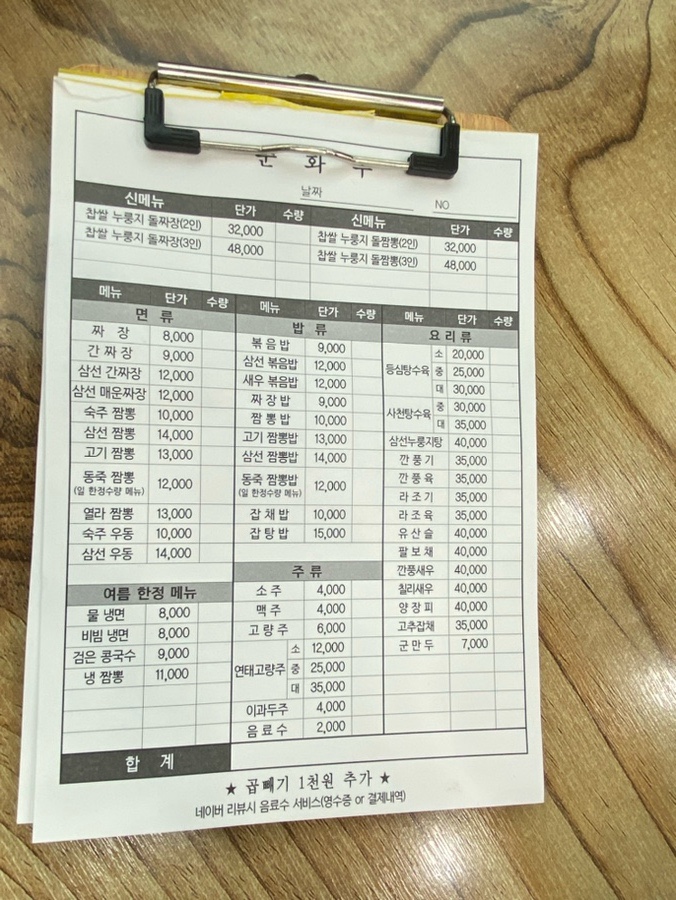 날짜 NO
신메뉴 단가 수량 신메뉴 단가 수량
찹쌀 누룽지 돌짜장(2인) 32,000 찹쌀 누룽지 돌짬뽕(2인) 32,000
찹쌀 누룽지 돌짜장(3인) 48,000 찹쌀 누룽지 돌짬뽕(3인) 48,000
메뉴 단가 수량
면 류
짜 장 8,000
간 짜 장 9,000
삼선 간짜장 12,000
삼선 매운짜장 12,000
숙주 짬뽕 10,000
삼선 짬뽕 14,000
고기 짬뽕 13,000
동죽 짬뽕 12,000
(일 한정수량 메뉴)
열라 짬뽕 13,000
숙주 우동 10,000
삼선 우동 14,000
여름 한정 메뉴
물 냉면 8,000
비빔 냉면 8,000
검은 콩국수 9,000
냉 짬뽕 11,000
메뉴 단가 수량
밥 류
볶 음 밥 9,000
삼선 볶음밥 12,000
새우 볶음밥 12,000
짜 장 밥 9,000
짬 뽕 밥 10,000
고기 짬뽕밥 13,000
삼선 짬뽕밥 14,000
동죽 짬뽕밥 12,000
(일 한정수량 메뉴)
잡 채 밥 10,000
잡 탕 밥 15,000
주 류
소 주 4,000
맥 주 4,000
고 량 주 6,000
연태고량주 소 12,000
중 25,000
대 35,000
이과두주 4,000
음 료 수 2,000
메뉴 단가 수량
요 리 류
등심탕수육 소 20,000
중 25,000
대 30,000
사천탕수육 중 30,000
대 35,000
삼선누룽지탕 40,000
깐 풍 기 35,000
깐 풍 육 35,000
라 조 기 35,000
라 조 육 35,000
유 산 슬 40,000
팔 보 채 40,000
깐풍새우 40,000
칠리새우 40,000
양 장 피 40,000
고추잡채 35,000
군 만 두 7,000
합 계
★ 곱빼기 1천원 추가 ★
네이버 리뷰시 음료수 서비스(영수증 or 결제내역)